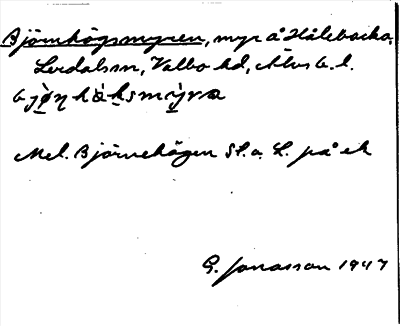 Björnhögsmyren, myr å Hålebacka,
Lerdalssn, Valbo hd, Älvs b. l.
bjø̀ṇhä̀ḵsmỳra
Mel. Björnehögen St. o. L. på ek
G. Jonasson 1947